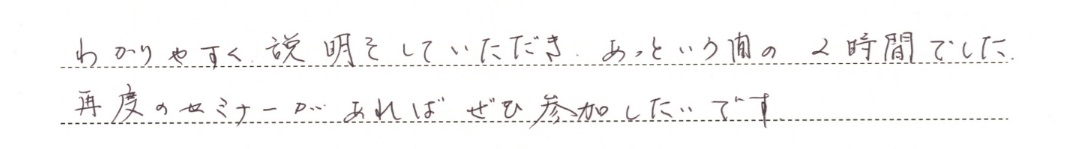 わかりやすく説明をしていただき、あっという間の2時間でした。
再度のセミナーがあればぜひ参加したいです